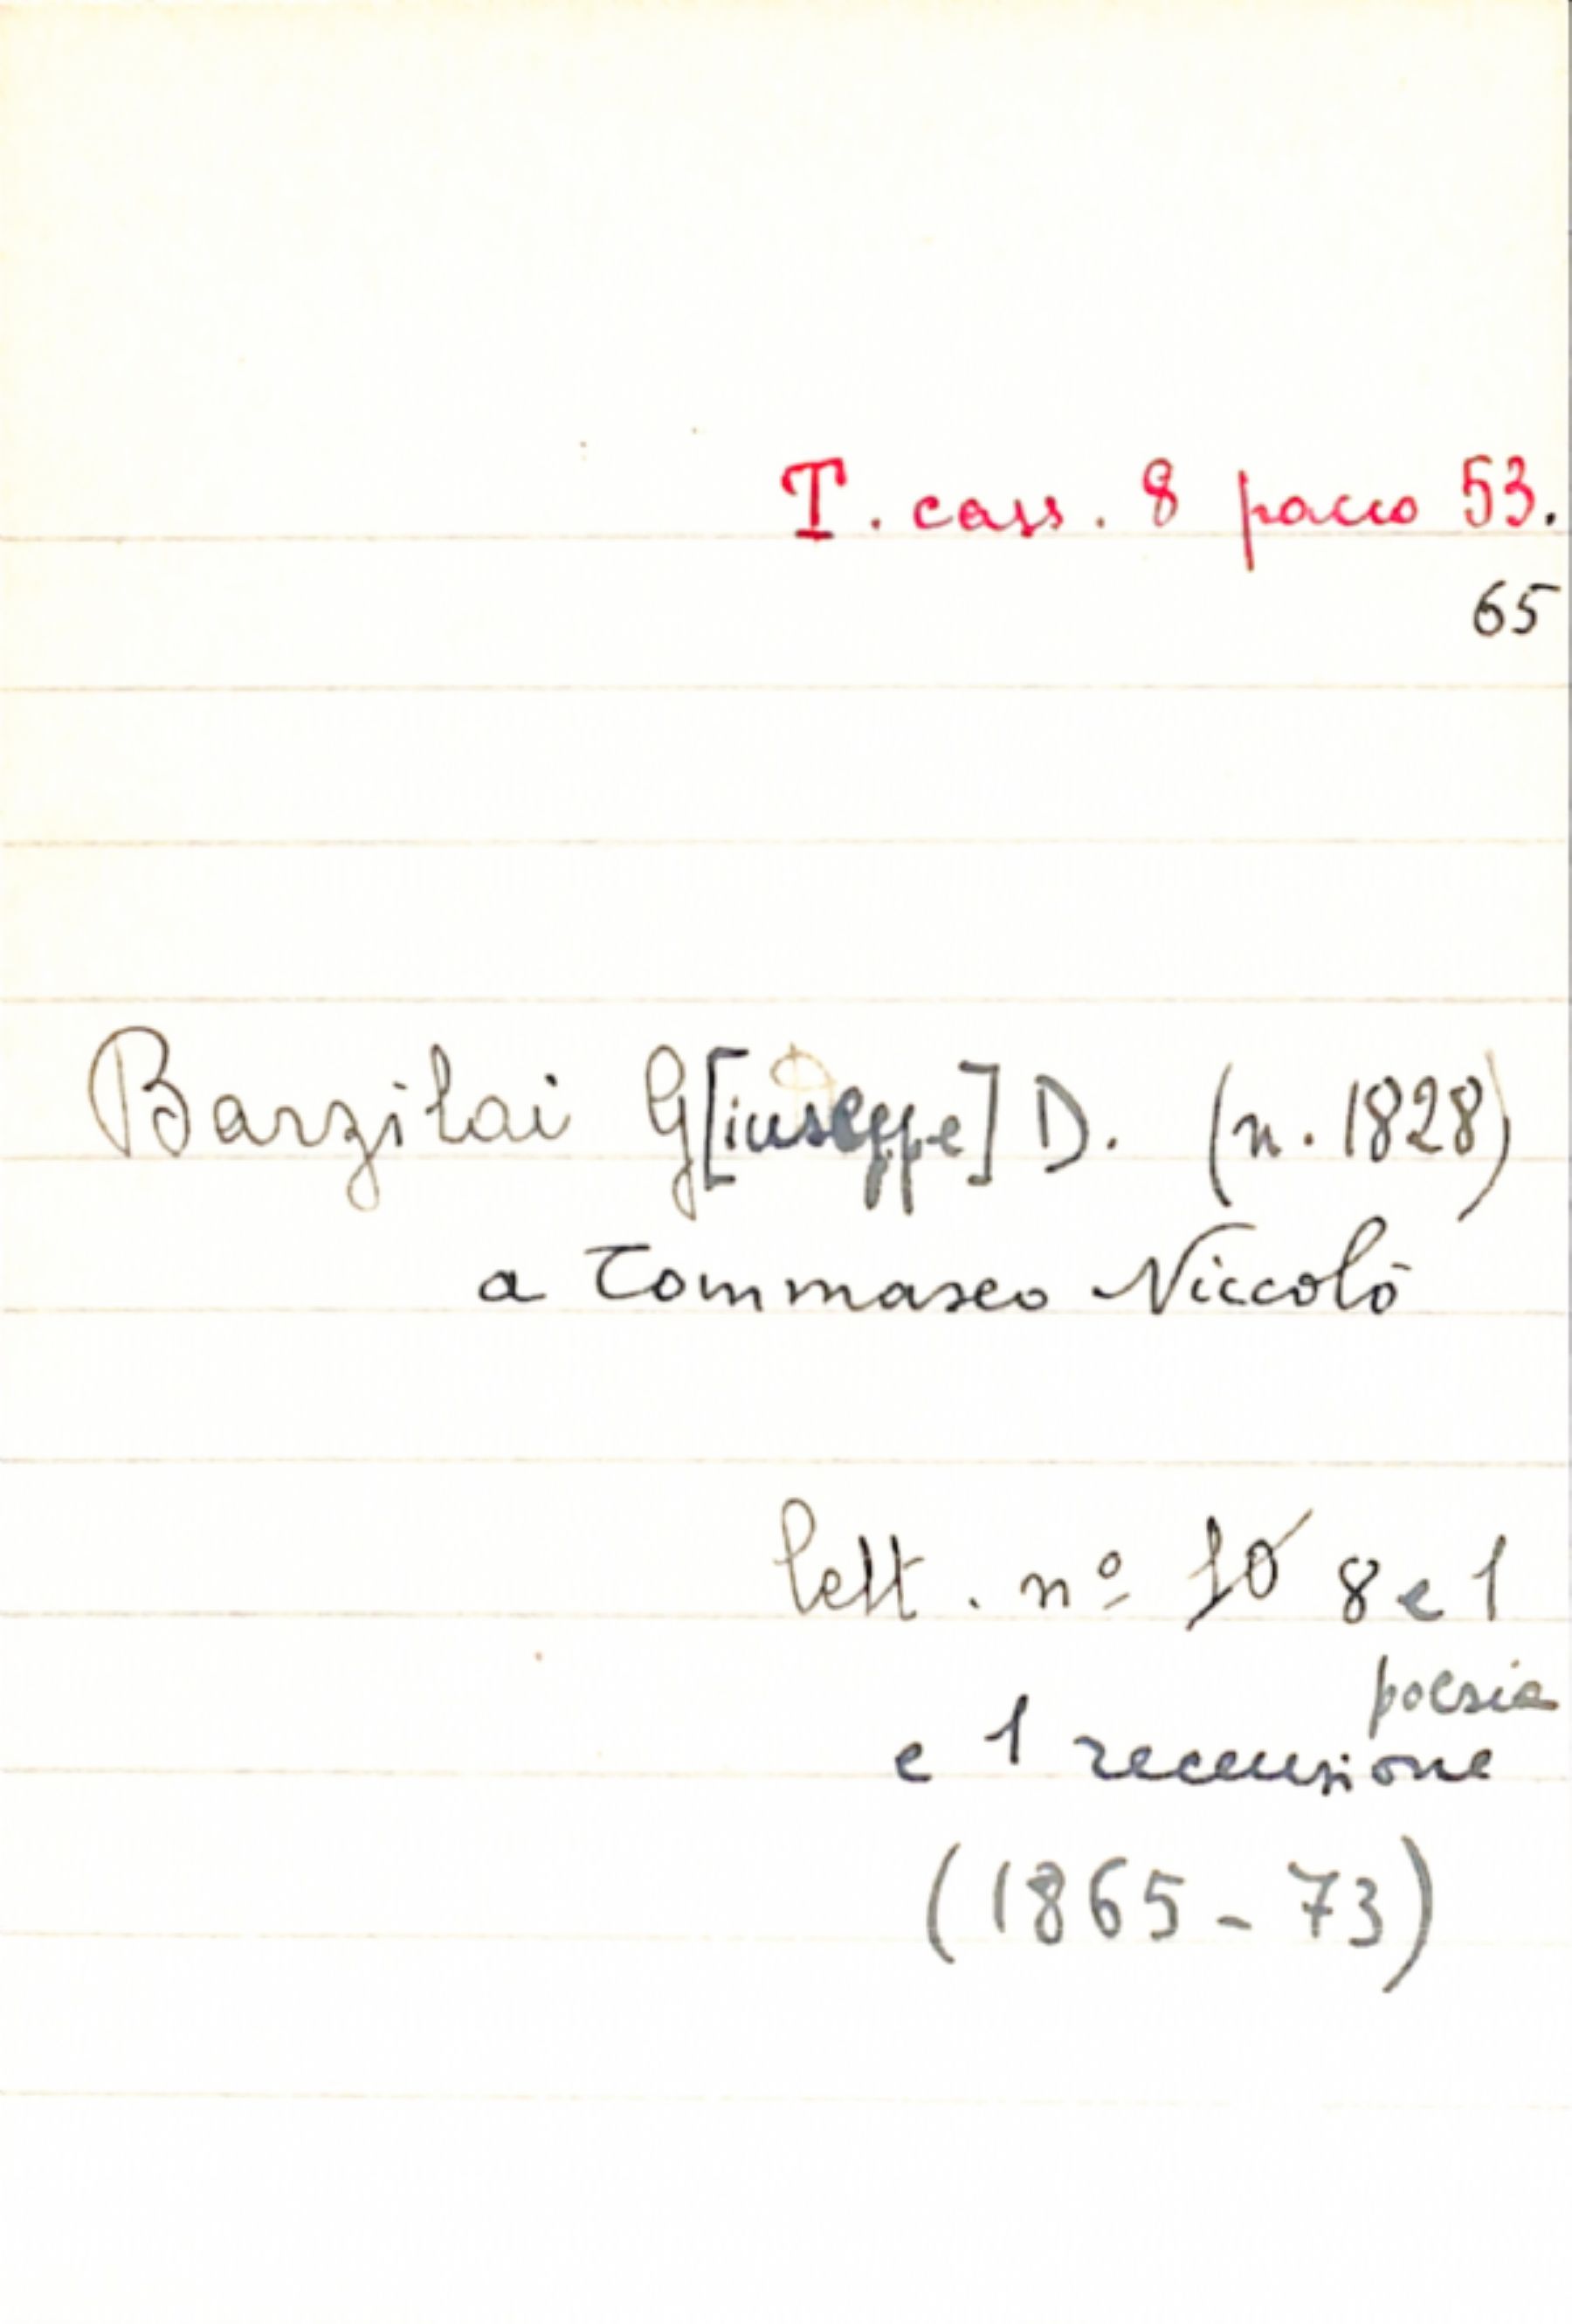 T. cass. 8 pacco 53.
65
Barzilai G[iuseppe] D. (n. 1828)
a Tommaseo Niccolò
lett. nº 10 8 e 1
poesia
e 1 recensione
(1865-73)